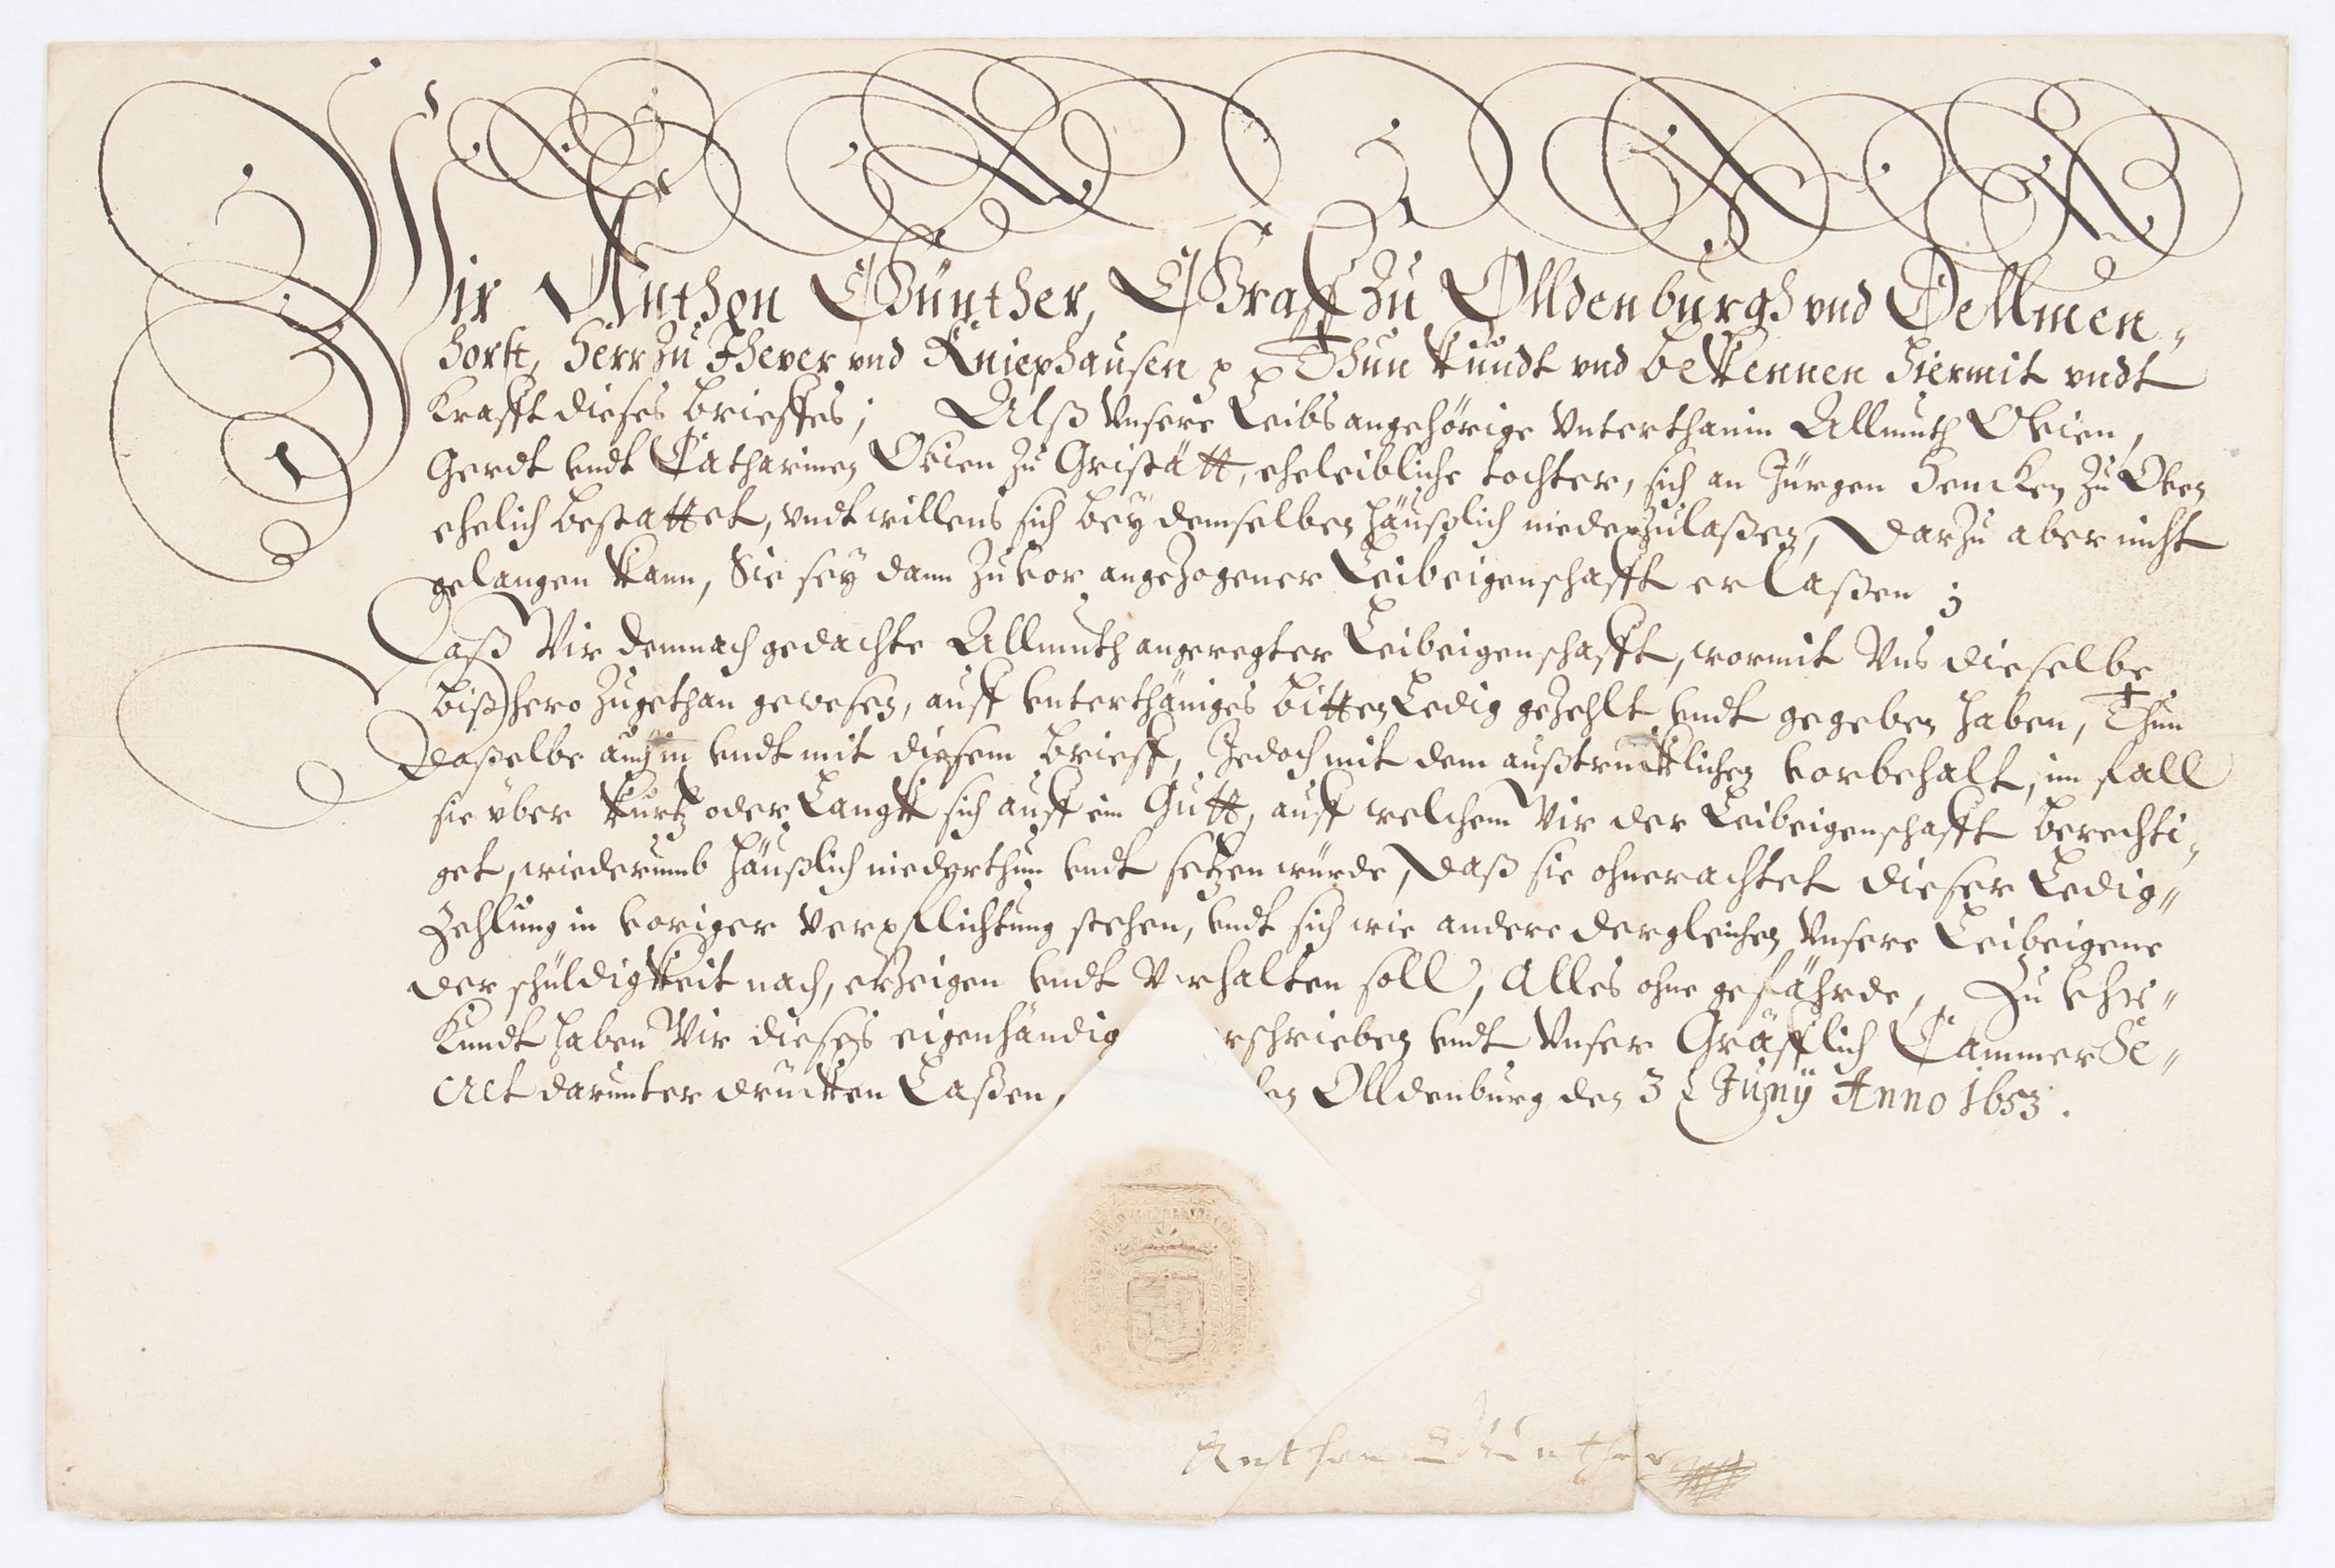 Wir Anthon Günther, Graff zu Olldenburgh vnd Dellmen„
horst, Herr zu Jhever vnd Kniephausen p p Thun kundt vnd bekennen hiermit vndt
krafft dieses brieffes; Alß Vnsere Leibsangehörige Vnterthanin Allmuth
Gerdt vndt Catharinen zu Gristätt, eheleibliche tochter, sich an Jürgen Hencken zu
ehelich bestattet, vndt willens sich bey demselben häußlich niederzulaßen, Darzu aber nicht
gelangen kann, Sie sey dann zuvor angezogener Leibeigenschafft erlaßen ;
Daß Wir demnach gedachte Allmuth angeregter Leibeigenschafft, wormit Vns dieselbe
bißhero zugethan gewesen, auff vnterthäniges bitten Ledig gezehlt vndt gegeben haben, Thun
Daßelbe auch in vndt mit diesem brieff, Jedoch mit dem außtrücklichen vorbehalt, im fall
sie über kurtz oder Langk sich auff ein Gutt, auff welchem Wir der Leibeigenschafft berechti„
get, wiederumb häußlich niederthun vndt setzen würde, Daß sie ohnerachtet dieser Ledig„
Zehlung in voriger Verpflichtung stehen, vndt sich wie andere dergleichen Vnsere Leibeigene
der schüldigkeit nach, erzeigen vndt Verhalten soll, Alles ohne gefährde, Zu Vhr„
kundt haben Wir dieses eigenhändig rschrieben vndt Vnser Gräfflich Cammer Se„
cret darunter drücken Laßen, en Olldenburg den 3 t Junÿ Anno 1653.
Anthon Günther